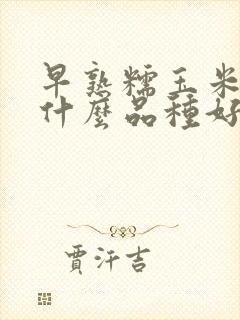 早熟糯玉米
什麼品種好
賈汗吉